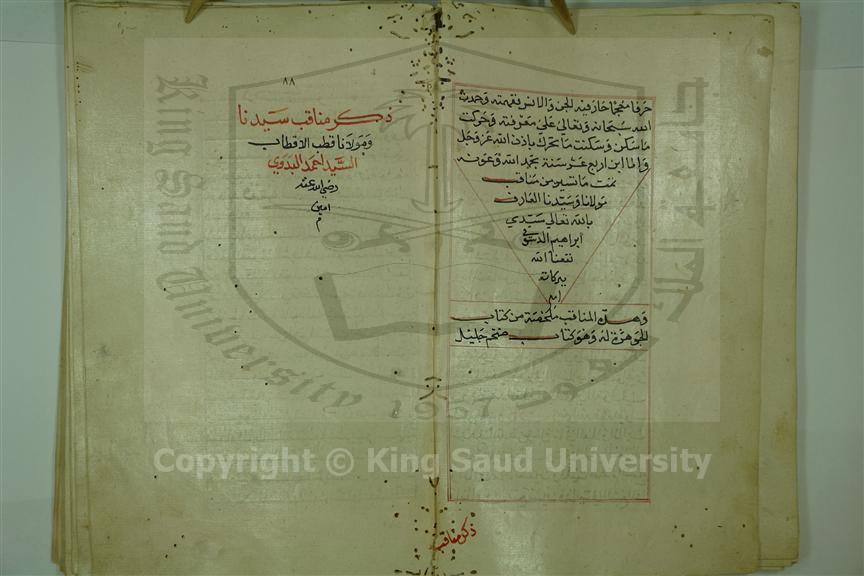 حرفا معجما حار فيه الجن والانس ففهمته وحمدت
الله سبحانه وتعالي علي معرفته وحركت
ما سكن وسكنت ما تحرك باذن الله عز وجل
وانا ابن اربع عشر سنة بحمد الله وعونه
تمت ما تيسر من مناقب
مولانا وسيدنا العارف
بالله تعالي سيدي
ابراهيم الدسوقي
نفعنا الله
ببركاته
امين
وهذه المناقب ملخصة من كتاب
الجوهرة له وهو كتاب ضخم جليل
ذكر مناقب
٨٨
ذكر مناقب سيدنا
ومولانا قطب الاقطاب
السيد احمد البدوي
رضي الله عنه
امين
م
King Saud University
1957
Copyright © King Saud University